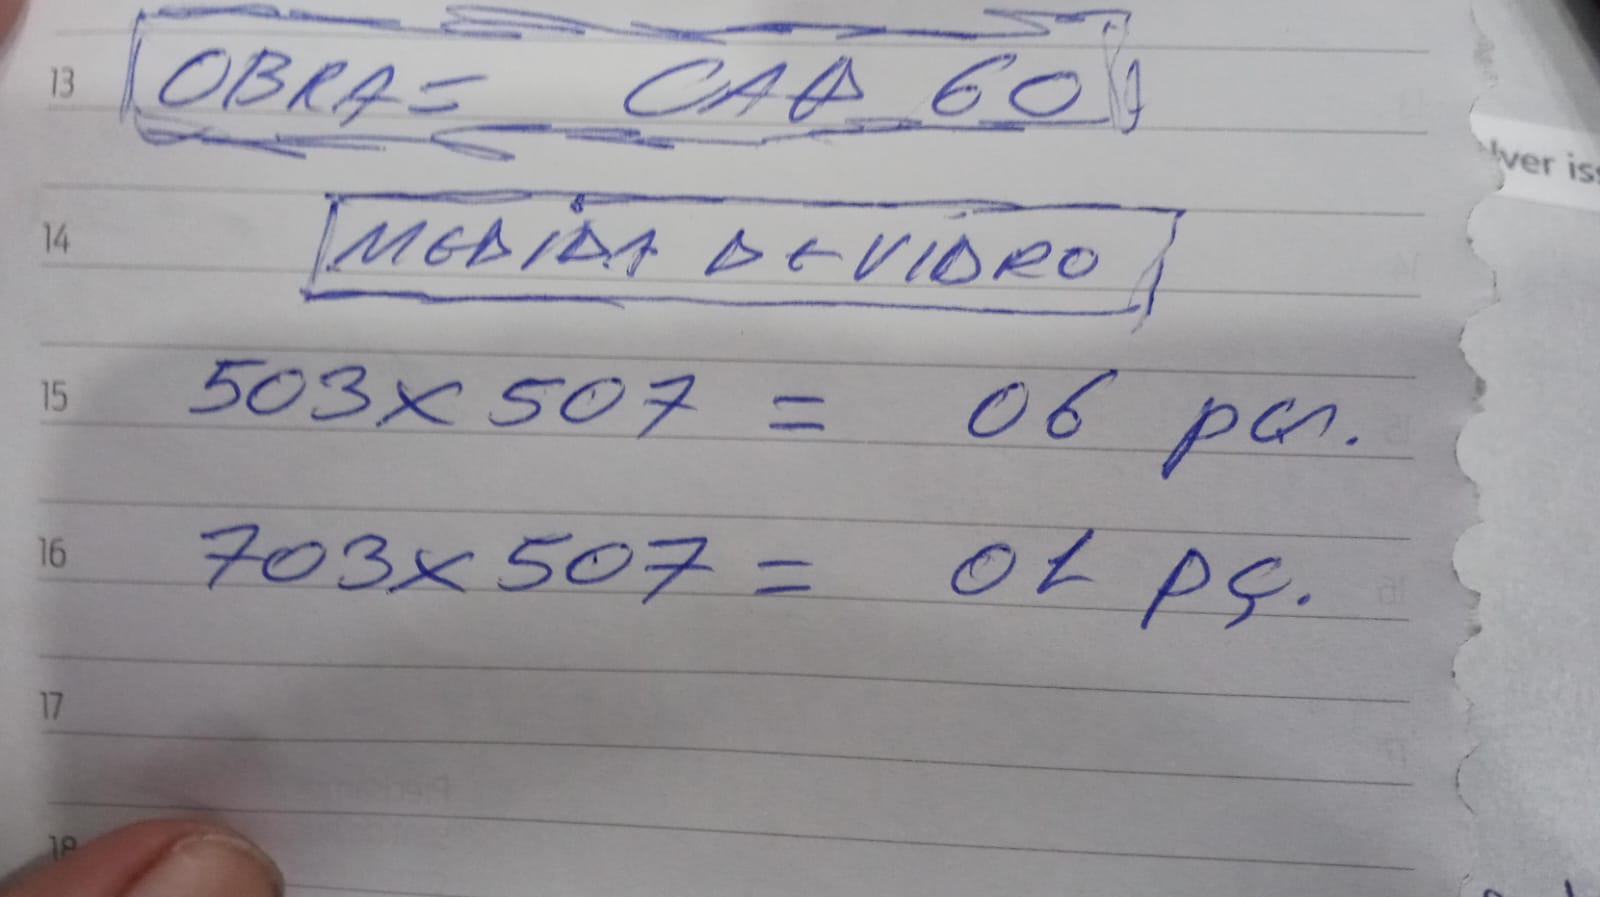 13 OBRA= CAA 60
lver iss
14 MEDIDA DE VIDRO
15 503x507 = 06 pçs.
16 703x507 = 01 pç.
17
18